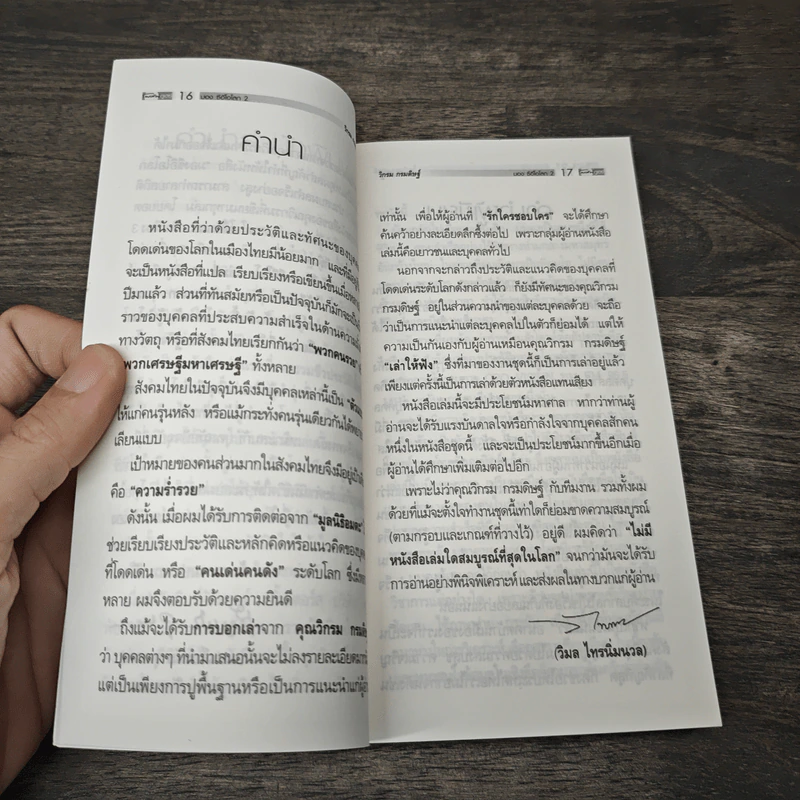 16 มอง ซีอีโอโลก 2
คำนำ
หนังสือที่ว่าด้วยประวัติและทัศนะของบุคคล
โดดเด่นของโลกในเมืองไทยมีน้อยมาก และที่มีอยู่
จะเป็นหนังสือที่แปล เรียบเรียงหรือเขียนขึ้นเมื่อ
ปีมาแล้ว ส่วนที่ทันสมัยหรือเป็นปัจจุบันก็มักจะเป็น
ราวของบุคคลที่ประสบความสำเร็จในด้านความ
ทางวัตถุ หรือที่สังคมไทยเรียกกันว่า "พวกคนรวย"
"พวกเศรษฐีมหาเศรษฐี" ทั้งหลาย
สังคมไทยในปัจจุบันจึงมีบุคคลเหล่านี้เป็น
ให้แก่คนรุ่นหลัง หรือแม้กระทั่งคนรุ่นเดียวกันได้
เลียนแบบ
เป้าหมายของคนส่วนมากในสังคมไทยจึงมีอยู่
คือ "ความร่ำรวย"
ดังนั้น เมื่อผมได้รับการติดต่อจาก "มูลนิธิอมตะ"
ช่วยเรียบเรียงประวัติและหลักคิดหรือแนวคิดของ
ที่โดดเด่น หรือ "คนเด่นคนดัง" ระดับโลก ซึ่งมี
หลาย ผมจึงตอบรับด้วยความยินดี
ถึงแม้จะได้รับการบอกเล่าจาก คุณวิกรม
ว่า บุคคลต่างๆ ที่นำมาเสนอนั้นจะไม่ลงรายละเอียด
แต่เป็นเพียงการปูพื้นฐานหรือเป็นการแนะนำแก่ผู้
วิกรม กรมดิษฐ์ มอง ซีอีโอโลก 2 17
เท่านั้น เพื่อให้ผู้อ่านที่ "รักใครชอบใคร" จะได้ศึกษา
ค้นคว้าอย่างละเอียดลึกซึ้งต่อไป เพราะกลุ่มผู้อ่านหนังสือ
เล่มนี้คือเยาวชนและบุคคลทั่วไป
นอกจากจะกล่าวถึงประวัติและแนวคิดของบุคคลที่
โดดเด่นระดับโลกดังกล่าวแล้ว ก็ยังมีทัศนะของคุณวิกรม
กรมดิษฐ์ อยู่ในส่วนความนำของแต่ละบุคคลด้วย จะถือ
ว่าเป็นการแนะนำแต่ละบุคคลไปในตัวก็ย่อมได้ แต่ให้
ความเป็นกันเองกับผู้อ่านเหมือนคุณวิกรม กรมดิษฐ์
"เล่าให้ฟัง" ซึ่งที่มาของงานชุดนี้ก็เป็นการเล่าอยู่แล้ว
เพียงแต่ครั้งนี้เป็นการเล่าด้วยตัวหนังสือแทนเสียง
หนังสือเล่มนี้จะมีประโยชน์มหาศาล หากว่าท่านผู้
อ่านจะได้รับแรงบันดาลใจหรือกำลังใจจากบุคคลสักคน
หนึ่งในหนังสือชุดนี้ และจะเป็นประโยชน์มากขึ้นอีกเมื่อ
ผู้อ่านได้ศึกษาเพิ่มเติมต่อไปอีก
เพราะไม่ว่าคุณวิกรม กรมดิษฐ์ กับทีมงาน รวมทั้งผม
ด้วยที่แม้จะตั้งใจทำงานชุดนี้เท่าใดก็ย่อมขาดความสมบูรณ์
(ตามกรอบและเกณฑ์ที่วางไว้) อยู่ดี ผมคิดว่า "ไม่มี
หนังสือเล่มใดสมบูรณ์ที่สุดในโลก" จนกว่ามันจะได้รับ
การอ่านอย่างพินิจพิเคราะห์ และส่งผลในทางบวกแก่ผู้อ่าน
(วิมล ไทรนิ่มนวล)